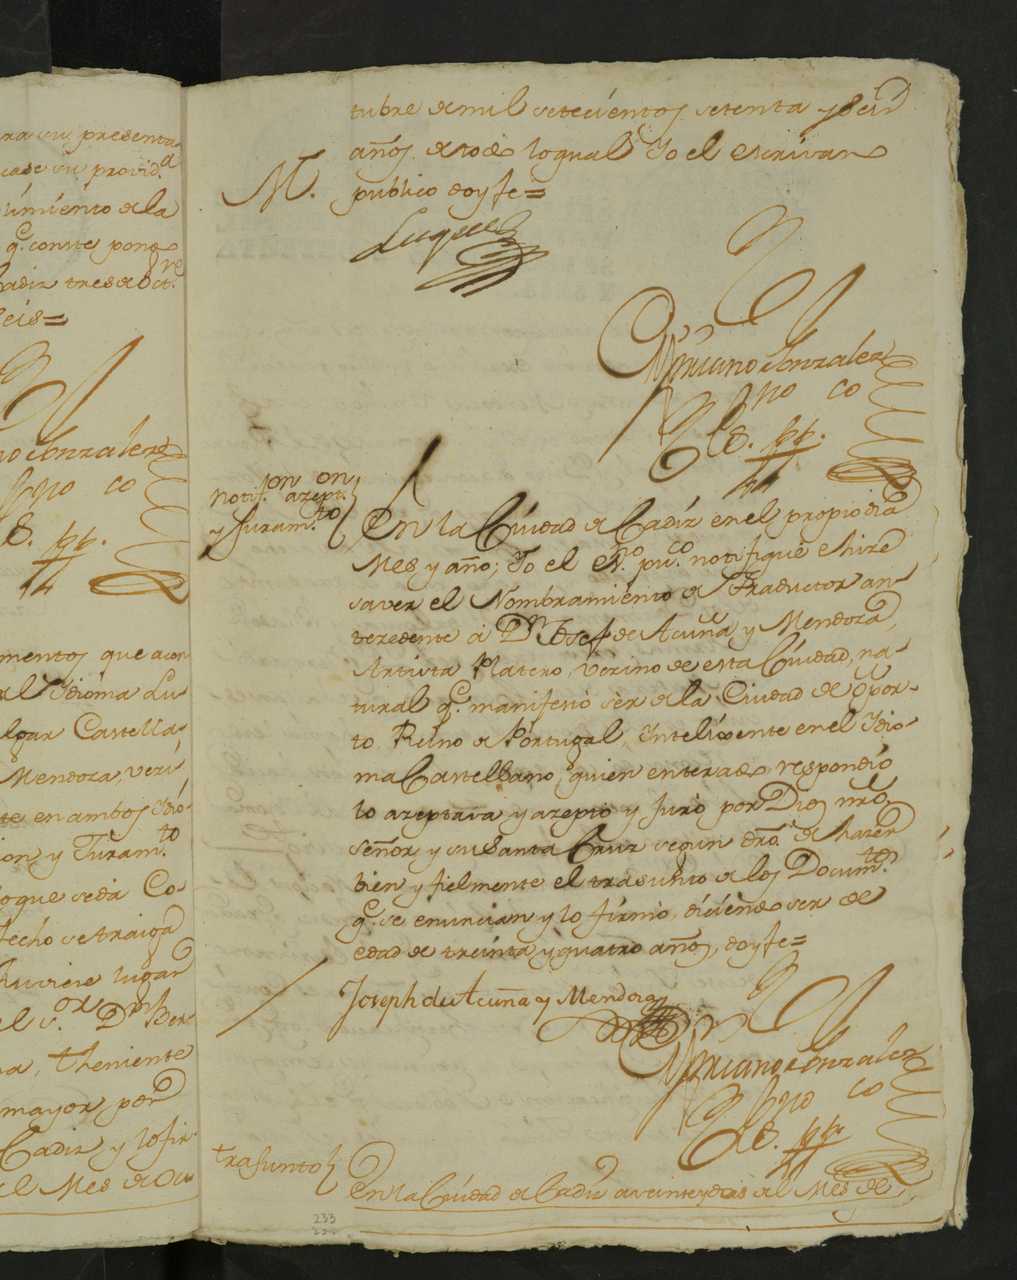 ra su presenta
case su provid.ª
umiento de la
q.e conste pong
Cadiz tres de Oct.re
seis=
no Gonzalez
mentos que acom
al Idióma Lu-
lgar Castella-
Mendoza, veci-
te en ambos Idió-
ion y Juram.to
loque se dà Co-
fecho se traiga
huviere lugar
el s.or D.n Ber-
na, theniente
mayor por
Cadiz, y lo fir-
el Mes de Octu
tubre de mil setecientos setenta y seis
años. de todo lo qual Yo el escrivano
publico doy fe=
M.
Luque
Cypriano Gonzalez
ss.no pp.co
notif.on azept.on
y Juram.to
En la Ciudad de Cadiz en el propio dia
Mes y año; Yo el es.no pu.co notifiquè è hize
saver el Nombramiento de Traductor an-
tezedente à D.n Josef de Acuña, y Mendoza,
Artista Platero, vezino de esta Ciudad, na-
tural q.e manifestó sèr de la Ciudad de Opor-
to Reino de Portugal, Intelixente en el Idio-
ma Castellano, quien enterado respondió
lo azeptava y azeptó y juró por Dios nrõ
señor y su Santa Cruz segun dro. de hazer
bien y fielmente el trasunto de los Docum.tos
q.e se enuncian y lo firmó, diciendo ser de
edad de treinta y quatro años, doy fe=
Joseph de Acuña y Mendoza
Cypriano Gonzalez
ss.no pp.co
trasunto
En la Ciudad de Cadiz a veinte y dos del Mes de
233